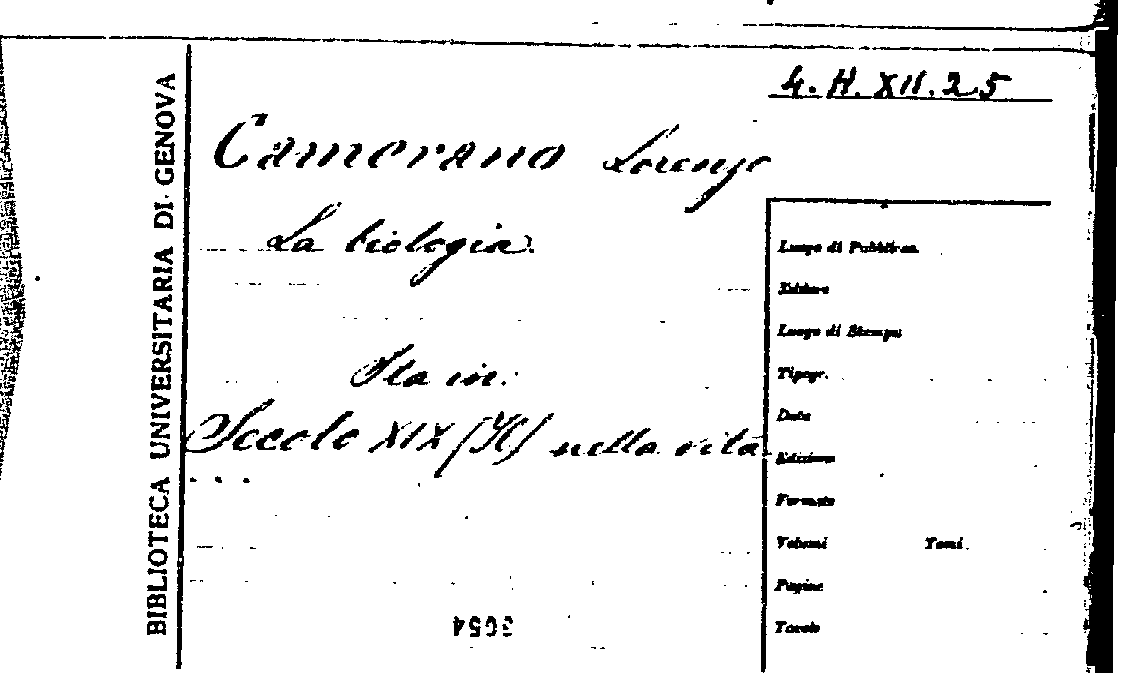 4. H. XII. 25
BIBLIOTECA UNIVERSITARIA DI GENOVA
Camerano Lorenzo
La biologia.
Sta in:
Secolo XIX (Il) nella vita
...
Luogo di Pubblicaz.
Editore
Luogo di Stampa
Tipogr.
Data
Edizione
Formato
Volumi Tomi
Pagine
Tavole
3054